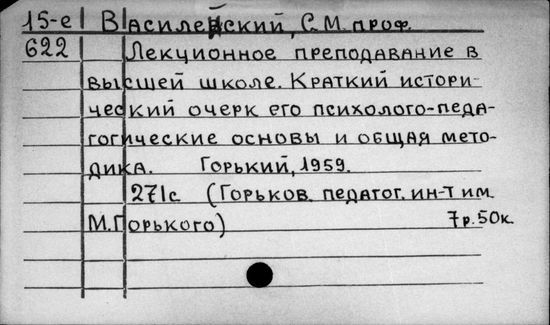 15-е Василейский, С. М. проф.
622 Лекционное преподавание в
высшей школе. Краткий истори-
ческий очерк его психолого-педа-
гогические основы и общая мето-
дика. Горький, 1959.
271с (Горьков. педагог. ин-т им.
М. Горького) 7р. 50к.